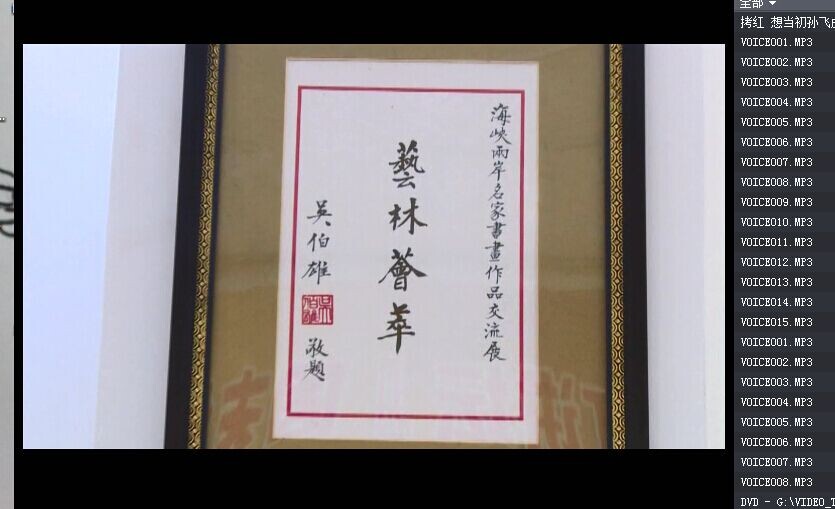 海峽兩岸名家書畫作品交流展
藝林薈萃
吳伯雄
敬題
全部
拷红 想当初孙飞
VOICE001.MP3
VOICE002.MP3
VOICE003.MP3
VOICE004.MP3
VOICE005.MP3
VOICE006.MP3
VOICE007.MP3
VOICE008.MP3
VOICE009.MP3
VOICE010.MP3
VOICE011.MP3
VOICE012.MP3
VOICE013.MP3
VOICE014.MP3
VOICE015.MP3
VOICE001.MP3
VOICE002.MP3
VOICE003.MP3
VOICE004.MP3
VOICE005.MP3
VOICE006.MP3
VOICE007.MP3
VOICE008.MP3
DVD - G:\VIDEO_T